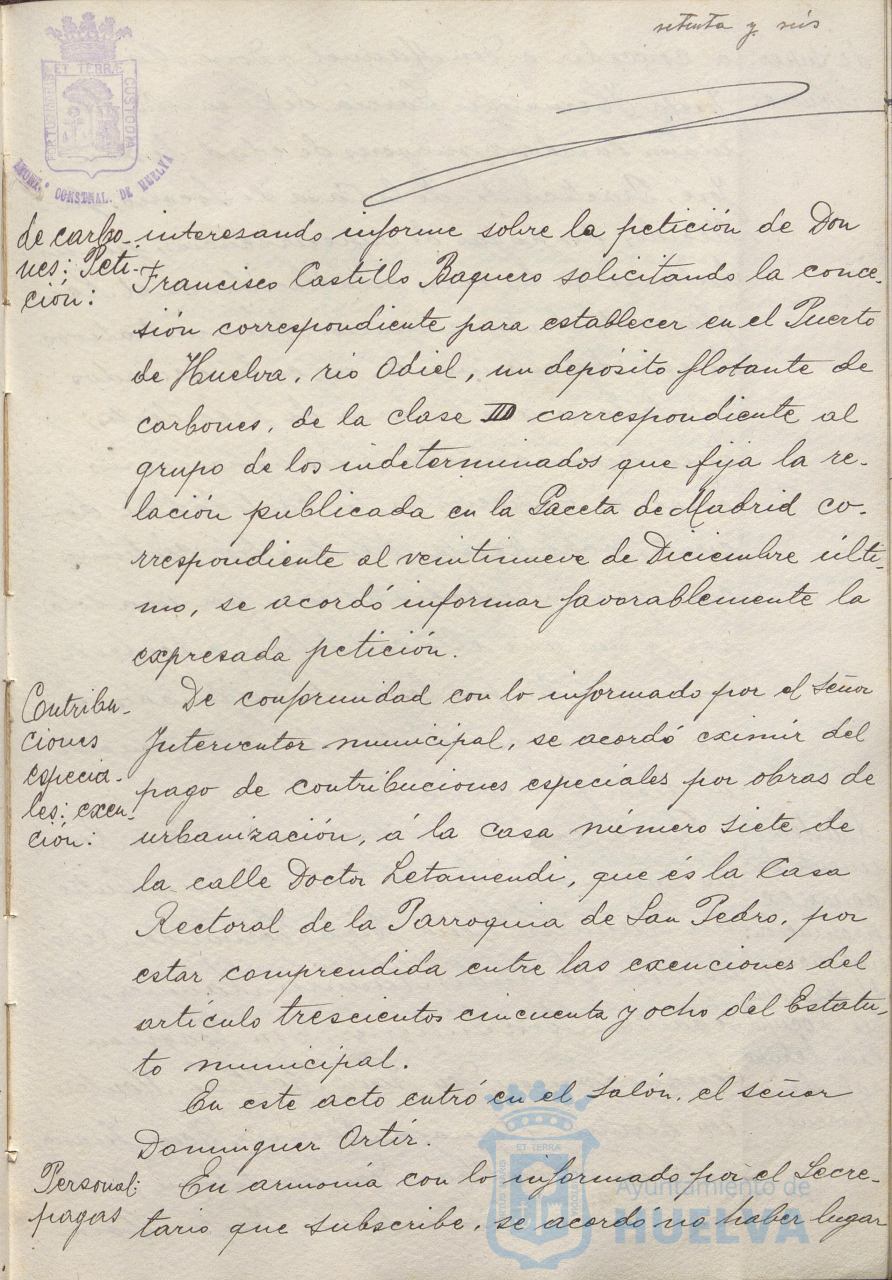 setenta y seis
PORTUS MARIS ET TERRÆ CUSTODIA
AYUNT.º CONSTNAL. DE HUELVA
de carbo-
nes: Peti-
ción:
interesando informe sobre la petición de Don
Francisco Castillo Baquero solicitando la conce-
sión correspondiente para establecer en el Puerto
de Huelva, rio Odiel, un depósito flotante de
carbones, de la clase III correspondiente al
grupo de los indeterminados que fija la re-
lación publicada en la Gaceta de Madrid co-
rrespondiente al veintinueve de Diciembre últi-
mo, se acordó informar favorablemente la
expresada petición.
Contribu-
ciones
especia-
les: exen-
ción:
De conformidad con lo informado por el señor
Interventor municipal, se acordó eximir del
pago de contribuciones especiales por obras de
urbanización, á la casa número siete de
la calle Doctor Letamendi, que és la Casa
Rectoral de la Parroquia de San Pedro, por
estar comprendida entre las exenciones del
artículo trescientos cincuenta y ocho del Estatu-
to municipal.
En este acto entró en el salón, el señor
Dominguez Ortíz.
Personal:
pagas
En armonía con lo informado por el Secre-
tario que subscribe, se acordó no haber lugar
PORTUS MARIS ET TERRÆ CUSTODIA
Ayuntamiento de
HUELVA